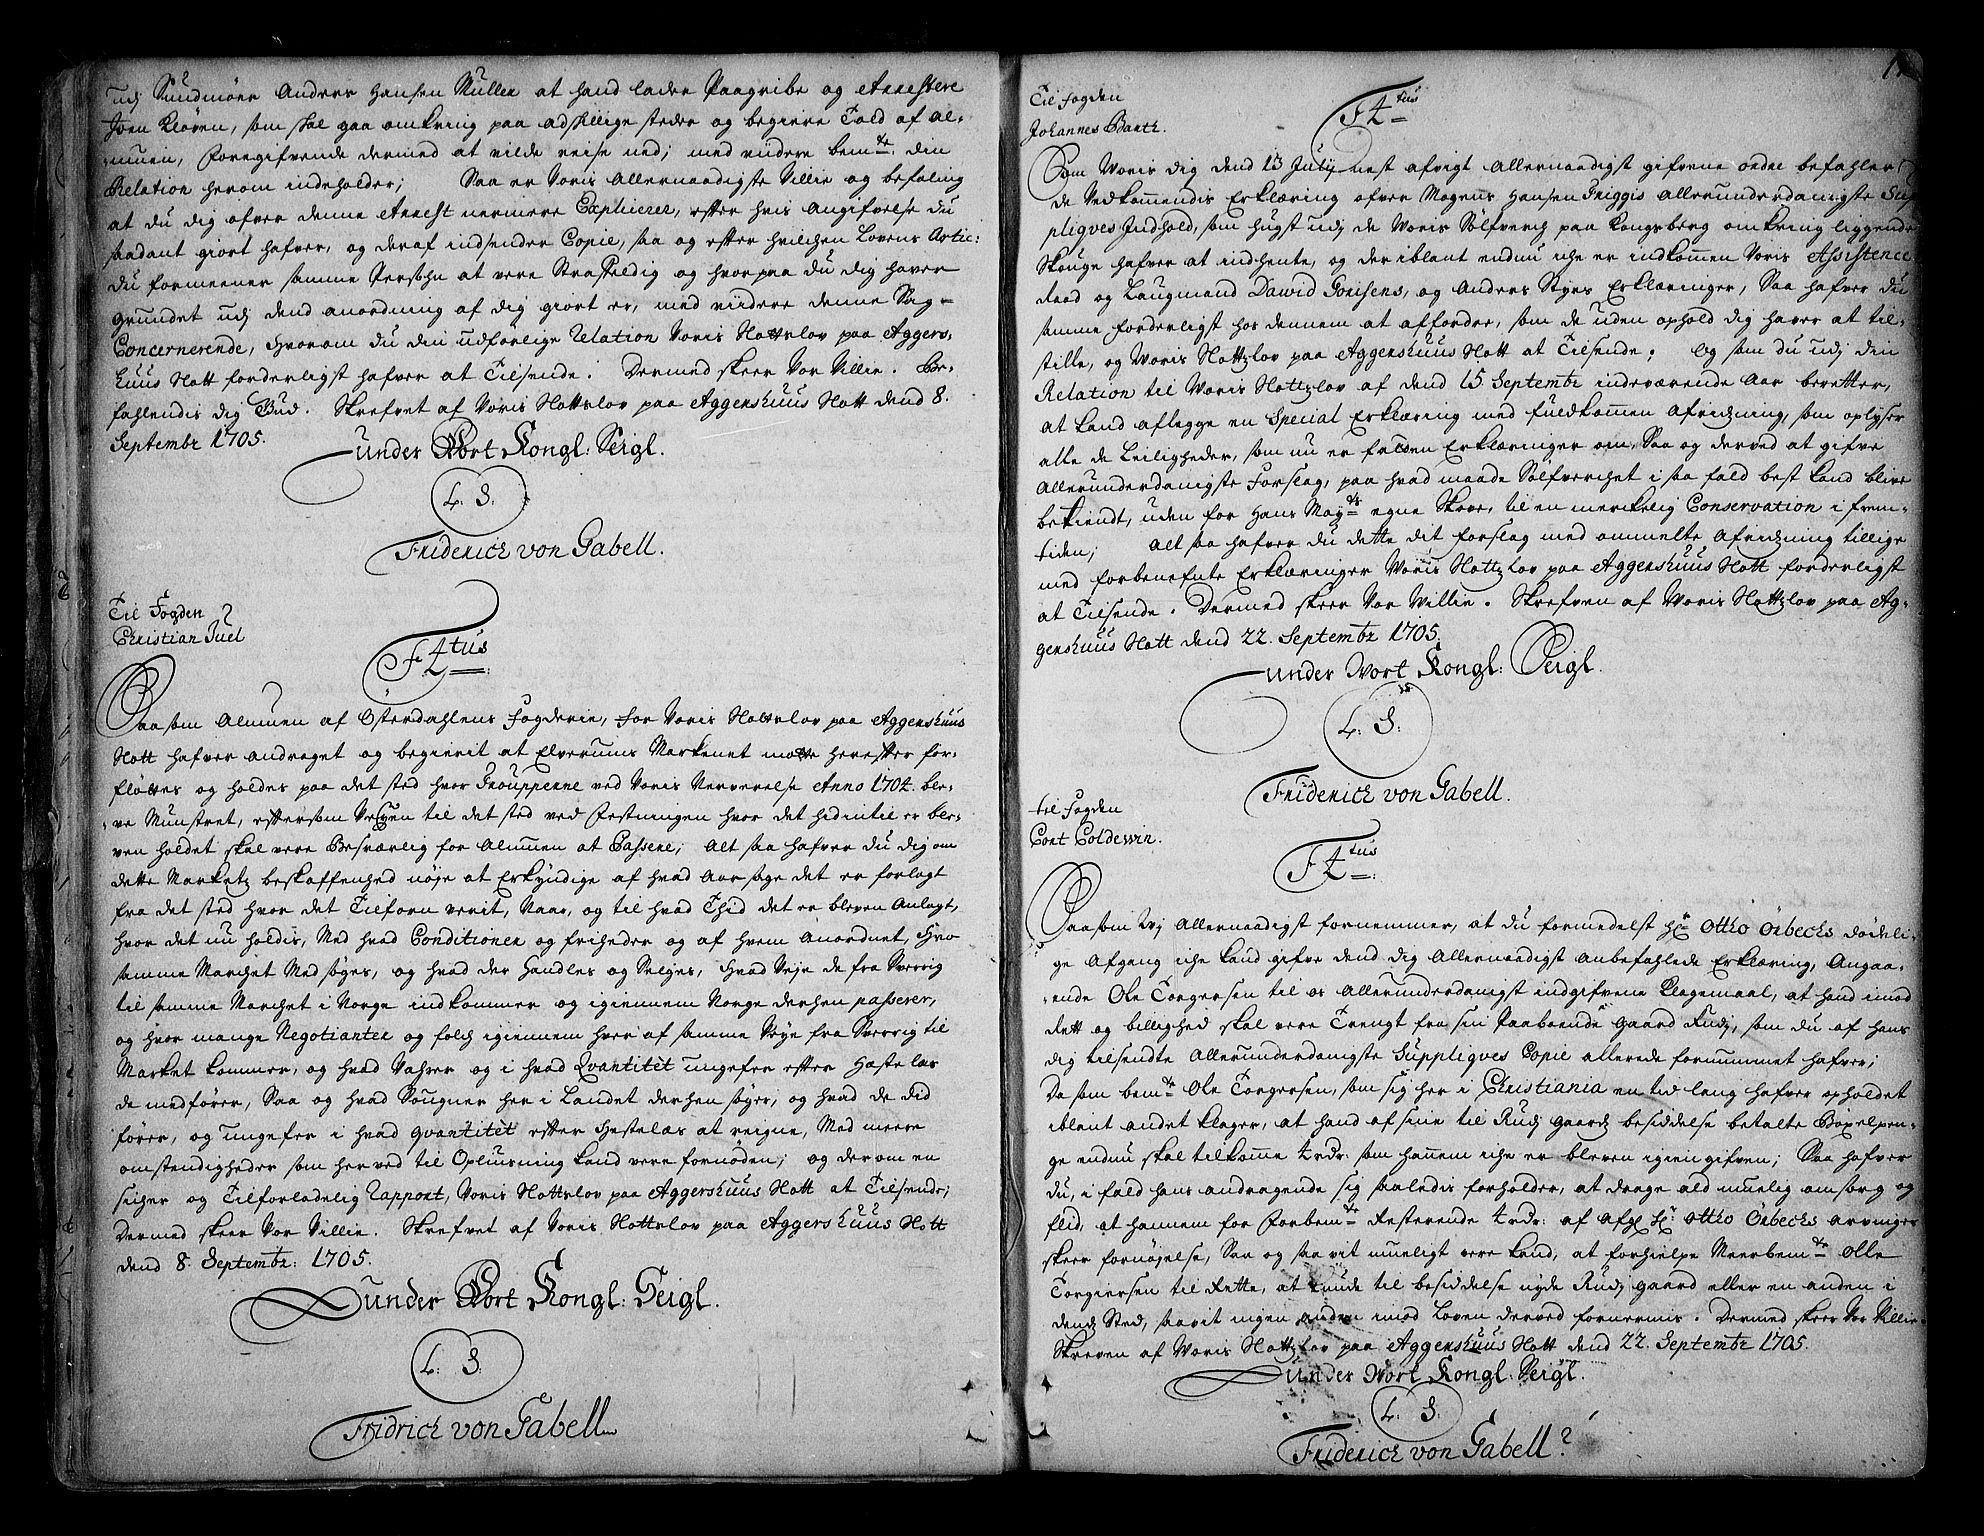 udj Sundmøer Anders Hansen Müller at hand lader Paagribe og Arrestere
Joen Kløven, som skal gaa omkring paa adskillige steder og begiere Told af al-
muen, Foregifvende dermed at vilde reise ned; med viidere bemte din
Relation herom indeholder; Saa er Voris Allernaadigste Villie og befaling
at du dig ofver denne Arrest nermere Explicerer, efter hvis Angifvelse du
saadant giort hafver, og deraf indsender Copie, saa og efter hvilchen Lovens Artic:
du formeener samme Persohn at vere Straffeldig og hvorpaa du dig haver
grundet udj dend anordning af dig giort er, med viidere denne Sag
Concernerende, hvorom du din udforlige Relation Voris Slottslov paa Aggers-
huus Slott forderligst hafver at Tilsende. Dermed skeer Vor Villie. Be-
fahlendis dig Gud. Skrefvet af Voris Slottslov paa Aggershuus Slott dend 8.
Septembr 1705.
under Vort Kongl: Seigl.
L. S.
Friderich von Gabell.
Til Fogden
Christian Juel
F 4tus
Saasom Almuen af Østerdahlens Fogderie, for Voris Slottslov paa Aggershuus
Slott hafver andraget og begierit at Elverums Markenet motte herefter for-
fløttes og holdes paa det sted hvor Trouppenne ved Voris Nerverelse Anno 1704. ble-
ve Munstret, eftersom Veyen til det sted ved Festningen hvor det hidintil er ble-
ven holdet skal vere Besværlig for Almuen at Passere; Alt saa hafver du dig om
dette Markets beskaffenhed nøje at Erkyndige af hvad Aarsage det er forlagt
fra det sted hvor det Tilforn verit, Naar, og til hvad Thid det er bleven Anlagt,
hvor det nu holdis, Med hvad Conditioner og friheder og af hvem Anordnet, Hvo
samme Marchet Med søges, og hvad der Handles og Selges, Hvad Veje de fra Sverrig
til samme Marchet i Norge indkommer og igiennem Norge derhen passerer,
og hvor mange Negotianter og folch igiennem hver af samme Veye fra Sverrig til
Market kommer, og hvad Vahrer og i hvad Qvantitet ungefer efter Hæste las
de medfører, Saa og hvad Sougner her i Landet derhen søger, og hvad de did
fører, og ungefer i hvad qvantitet efter Hestelæs at reigne, Med meere
omstendigheder som herved til Opliusning kand vere fornøden; og derom en
sicher og Tilforladelig Rapport, Voris Slottslov paa Aggershuus Slott at Tilsende;
Dermed skeer Vor Villie. Skrefvet af Voris Slottslov paa Aggershuus Slott
dend 8. Septembr: 1705.
under Vort Kongl: Seigl.
L. S.
Fridrich von Gabell
Til Fogden
Johannes Barth.
F 4tus
Som Voris dig dend 13 July nest afvigt Allernaadigst gifvene ordre befahler
de Vedkommendis Erklæring ofver Magnus Hansen Friggis Allerunderdanigste Sup
pliqves Indhold, som hugst udj de Voris Sølfverch paa Kongsberg omkring liggende
Skouge hafver at indhente, og deriblant endnu iche er indkommen Voris Assistence
Raad og Laugmand Dawid Gorisens, og Anders Styrs Erklæringer, Saa hafver du
samme forderligst hos dennem at affordre, som de uden ophold dig haver at til-
stille, og Woris Slottzlov paa Aggershuus Slott at Tilsende. Og som du udj din
Relation til Woris Slottzlov af dend 15 Septembr indeværende Aar beretter,
at kand aflegge en Special Erklæring med fuldkommen Afridzning, som oplyser
alle de Leiligheder, som nu er falden Erklæringer om, Saa og derved at gifve
Allerunderdanigste Forslag, paa hvad maade Sølfverchet i saa fald best kand blive
bekiendt, uden for Hans Mayts egne Skove, til en merckelig Conservation i frem-
tiden; Alt saa hafver du dette dit forslag med ommelte Afridzning tillige
med forbenefnte Erklæringer Woris Slottzlov paa Aggershuus Slott forderligst
at Tilsende. Dermed skeer Vor Willie. Skrefven af Woris Slottzlov paa Ag-
gershuus Slott dend 22. Septembr 1705.
under Wort Kongl: Seigl.
L. S.
Friderich von Gabell.
til Fogden
Cort Coldewin.
F 4tus
Saasom Wij Allernaadigst fornemmer, at du formedelst Hr Ottho Orbechs dødeli-
ge Afgang iche kand gifve dend dig Allernaadigst anbefahlede Erklæring, Angaa-
ende Ole Torgersen til os Allerunderdanigst indgifvene Klagemaal, at hand imod
Rett og billighed skal vere Trengt fra sin Paaboende gaard Rudj, som du af hans
dig tilsendte Allerunderdanigste Suppliqves Copie allerede fornummet hafver;
Da som bemte Ole Torgersen, som sig her i Christiania en tid lang hafver opholdet
iblant andet klager, at hand af sine til Rudj gaards besiddelse betalte Bøxelpen-
ge endnu skal tilkomme 4 rdr. som hannem iche er bleven igiengifven; Saa hafver
du, i fald hans andragende sig saaledis forholder, at drage ald muelig omsorg og
flid, at hannem for Forbemte Resterende 4 rdr: af Afgl Hr Ottho Orbechs arvinger
skeer fornøjelse, Saa og saavit mueligt vere kand, at forhielpe Meerbemte Olle
Torgiersen til Rette, at kunde til besiddelse nyde Rudj gaard eller en anden i
dends Sted, saavit ingen anden imod Loven derved fornermis. Dermed skeer Vor Villie.
Skreven af Woris Slottzlov paa Aggershuus Slott dend 22. Septembr 1705.
under Wort Kongl: Seigl.
L. S.
Friderich von Gabell